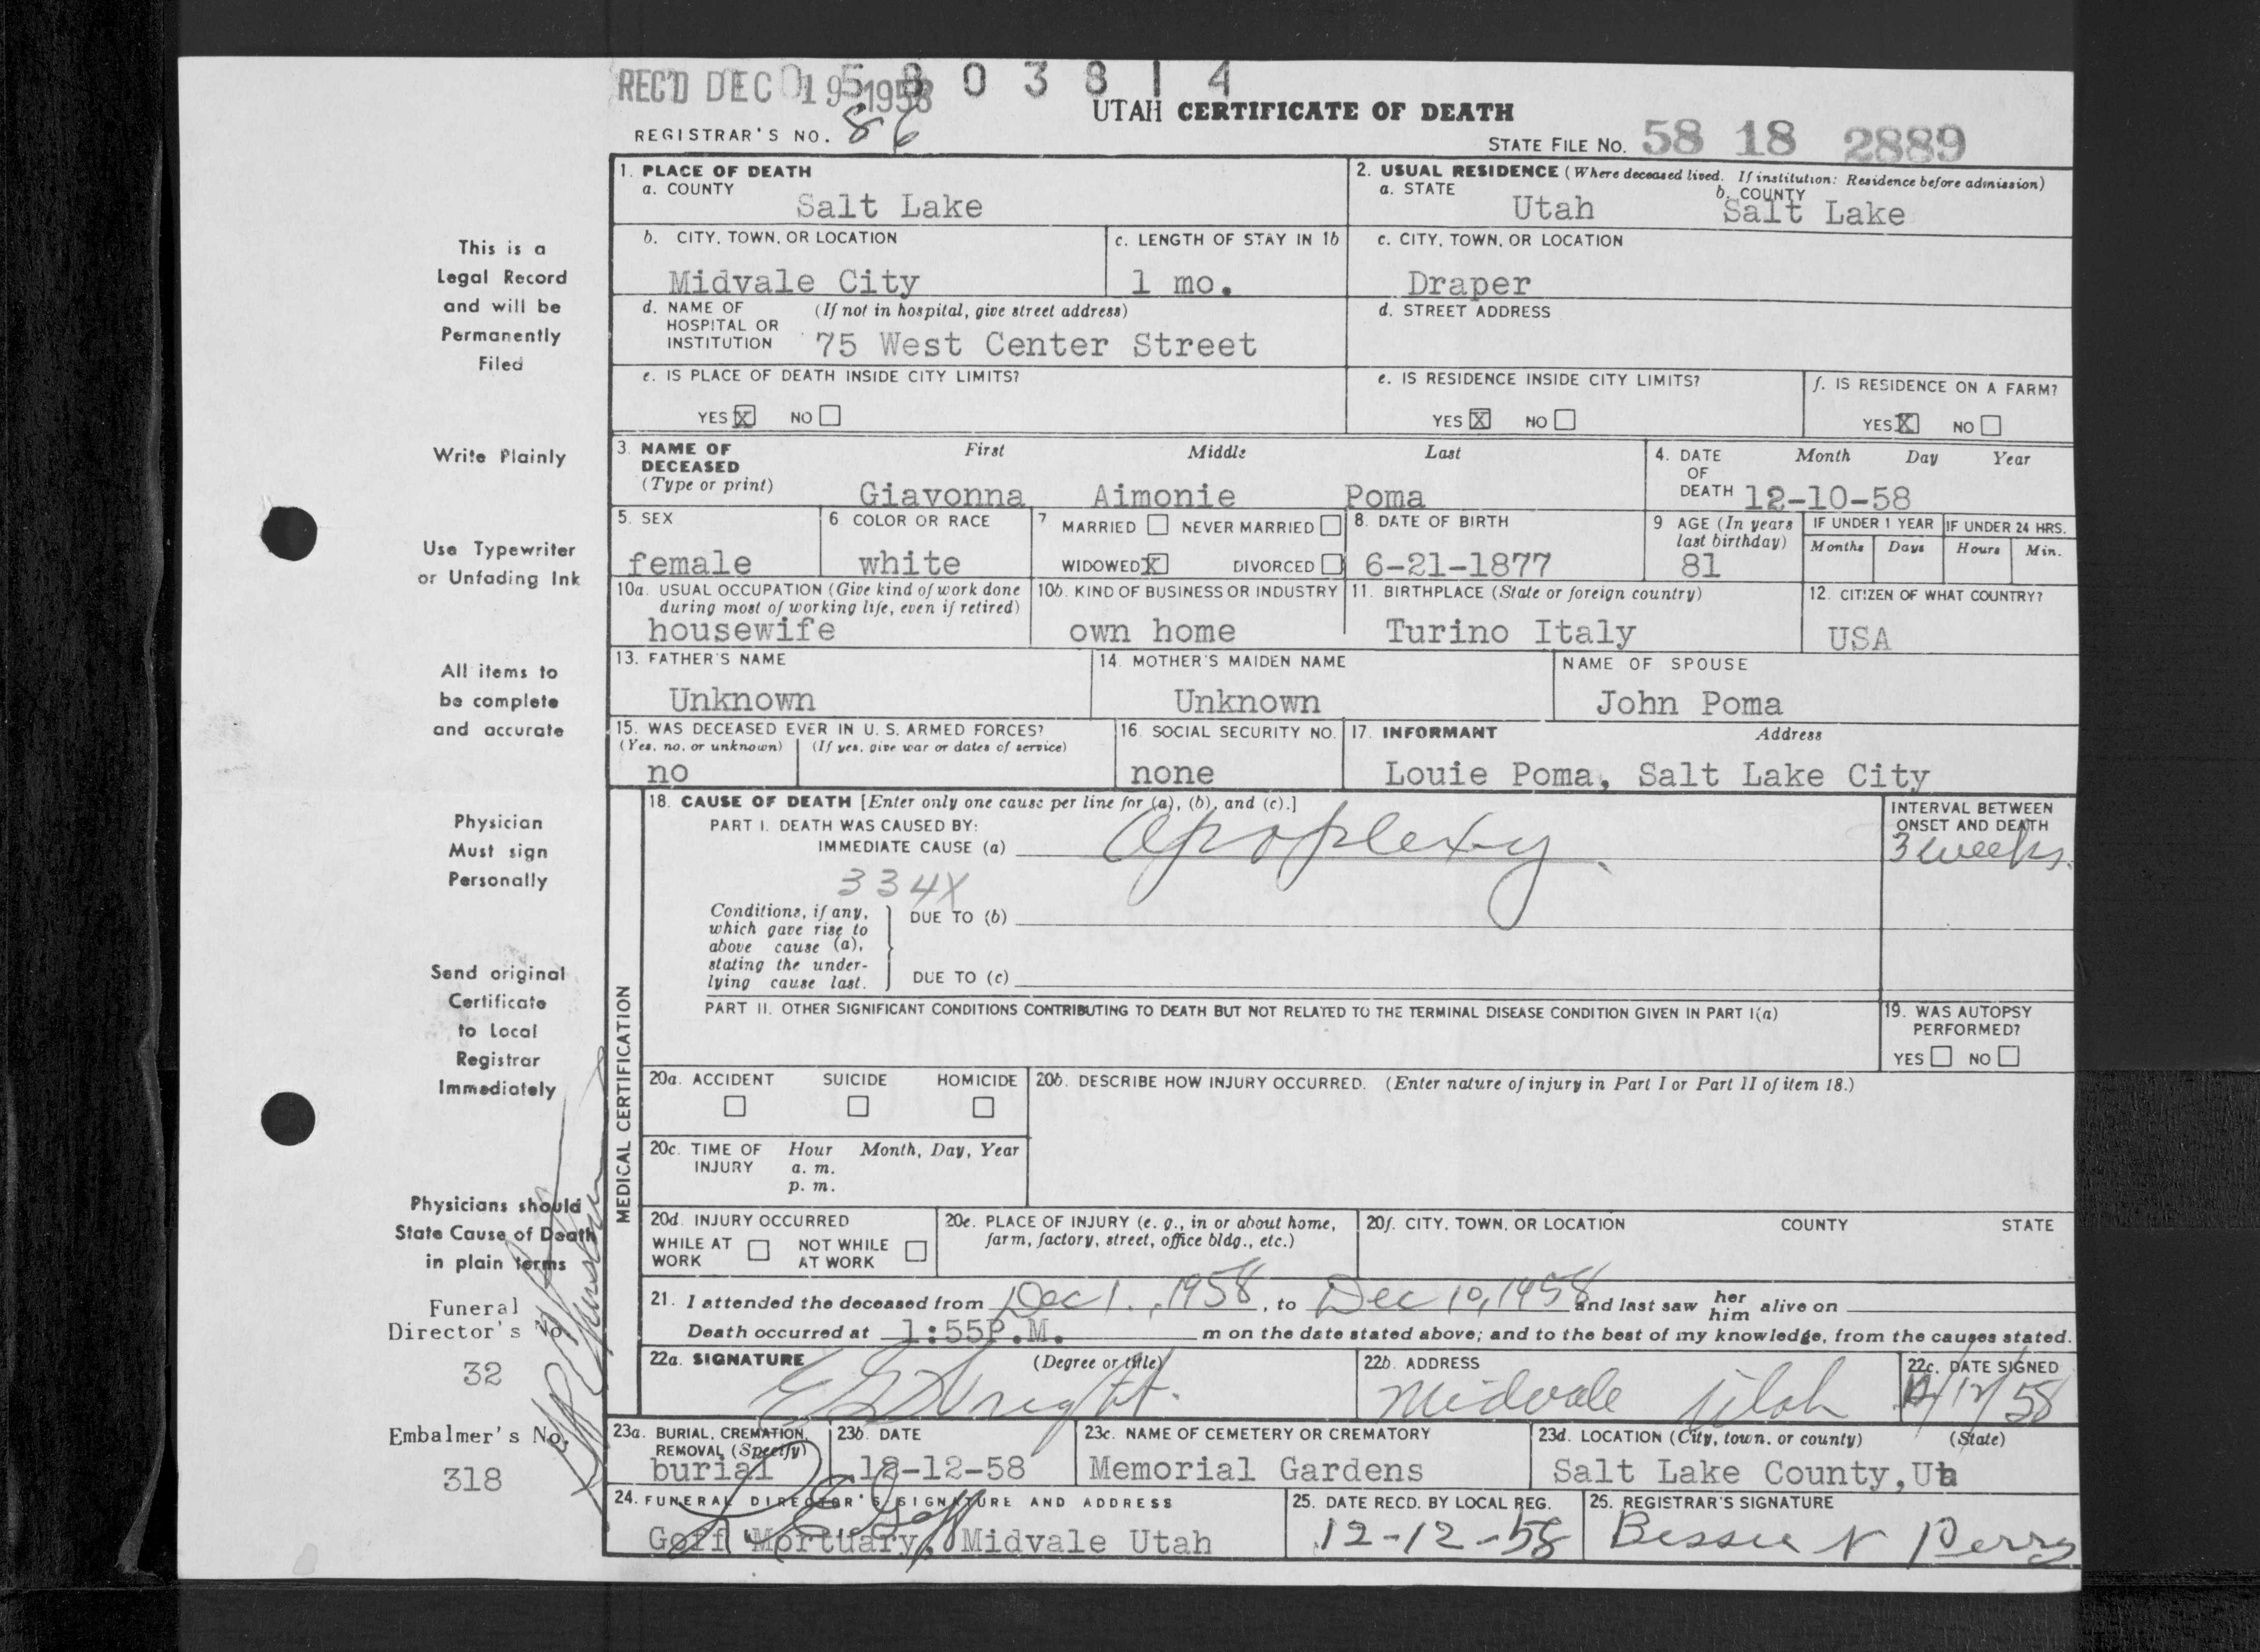 REC'D DEC 19 1958
0 5 8 0 3 8 1 4
UTAH CERTIFICATE OF DEATH
REGISTRAR'S NO. 86
STATE FILE NO. 58 18 2889
This is a
Legal Record
and will be
Permanently
Filed
Write Plainly
Use Typewriter
or Unfading Ink
All items to
be complete
and accurate
Physician
Must sign
Personally
Send original
Certificate
to Local
Registrar
Immediately
Physicians should
State Cause of Death
in plain terms
Funeral
Director's No.
32
Embalmer's No.
318
1. PLACE OF DEATH
a. COUNTY
Salt Lake
2. USUAL RESIDENCE (Where deceased lived. If institution: Residence before admission)
a. STATE b. COUNTY
Utah Salt Lake
b. CITY, TOWN, OR LOCATION
Midvale City
c. LENGTH OF STAY IN 1b
1 mo.
c. CITY, TOWN, OR LOCATION
Draper
d. NAME OF (If not in hospital, give street address)
HOSPITAL OR
INSTITUTION 75 West Center Street
d. STREET ADDRESS
e. IS PLACE OF DEATH INSIDE CITY LIMITS?
YES X NO
e. IS RESIDENCE INSIDE CITY LIMITS?
YES X NO
f. IS RESIDENCE ON A FARM?
YES X NO
3. NAME OF First Middle Last
DECEASED
(Type or print) Giavonna Aimonie Poma
4. DATE Month Day Year
OF
DEATH 12-10-58
5. SEX
female
6. COLOR OR RACE
white
7. MARRIED NEVER MARRIED
WIDOWED X DIVORCED
8. DATE OF BIRTH
6-21-1877
9 AGE (In years
last birthday)
81
IF UNDER 1 YEAR IF UNDER 24 HRS.
Months Days Hours Min.
10a. USUAL OCCUPATION (Give kind of work done
during most of working life, even if retired)
housewife
10b. KIND OF BUSINESS OR INDUSTRY
own home
11. BIRTHPLACE (State or foreign country)
Turino Italy
12. CITIZEN OF WHAT COUNTRY?
USA
13. FATHER'S NAME
Unknown
14. MOTHER'S MAIDEN NAME
Unknown
NAME OF SPOUSE
John Poma
15. WAS DECEASED EVER IN U. S. ARMED FORCES?
(Yes, no, or unknown) (If yes, give war or dates of service)
no
16. SOCIAL SECURITY NO.
none
17. INFORMANT Address
Louie Poma, Salt Lake City
MEDICAL CERTIFICATION
18. CAUSE OF DEATH [Enter only one cause per line for (a), (b), and (c).]
PART I. DEATH WAS CAUSED BY:
IMMEDIATE CAUSE (a) Apoplexy.
334X
INTERVAL BETWEEN
ONSET AND DEATH
3 weeks.
Conditions, if any,
which gave rise to
above cause (a),
stating the under-
lying cause last.
DUE TO (b)
DUE TO (c)
PART II. OTHER SIGNIFICANT CONDITIONS CONTRIBUTING TO DEATH BUT NOT RELATED TO THE TERMINAL DISEASE CONDITION GIVEN IN PART I(a)
19. WAS AUTOPSY
PERFORMED?
YES NO
20a. ACCIDENT SUICIDE HOMICIDE
20b. DESCRIBE HOW INJURY OCCURRED. (Enter nature of injury in Part I or Part II of item 18.)
20c. TIME OF Hour Month, Day, Year
INJURY a. m.
p. m.
20d. INJURY OCCURRED
WHILE AT NOT WHILE
WORK AT WORK
20e. PLACE OF INJURY (e. g., in or about home,
farm, factory, street, office bldg., etc.)
20f. CITY, TOWN, OR LOCATION COUNTY STATE
21. I attended the deceased from Dec 1., 1958, to Dec 10, 1958 and last saw her him alive on
Death occurred at 1:55P.M. m on the date stated above; and to the best of my knowledge, from the causes stated.
22a. SIGNATURE (Degree or title)
22b. ADDRESS
Midvale Utah
22c. DATE SIGNED
12/12/58
23a. BURIAL, CREMATION,
REMOVAL (Specify)
burial
23b. DATE
12-12-58
23c. NAME OF CEMETERY OR CREMATORY
Memorial Gardens
23d. LOCATION (City, town, or county) (State)
Salt Lake County, Ut
24. FUNERAL DIRECTOR'S SIGNATURE AND ADDRESS
Goff Mortuary, Midvale Utah
25. DATE RECD. BY LOCAL REG.
12-12-58
25. REGISTRAR'S SIGNATURE
Bessie N Perry